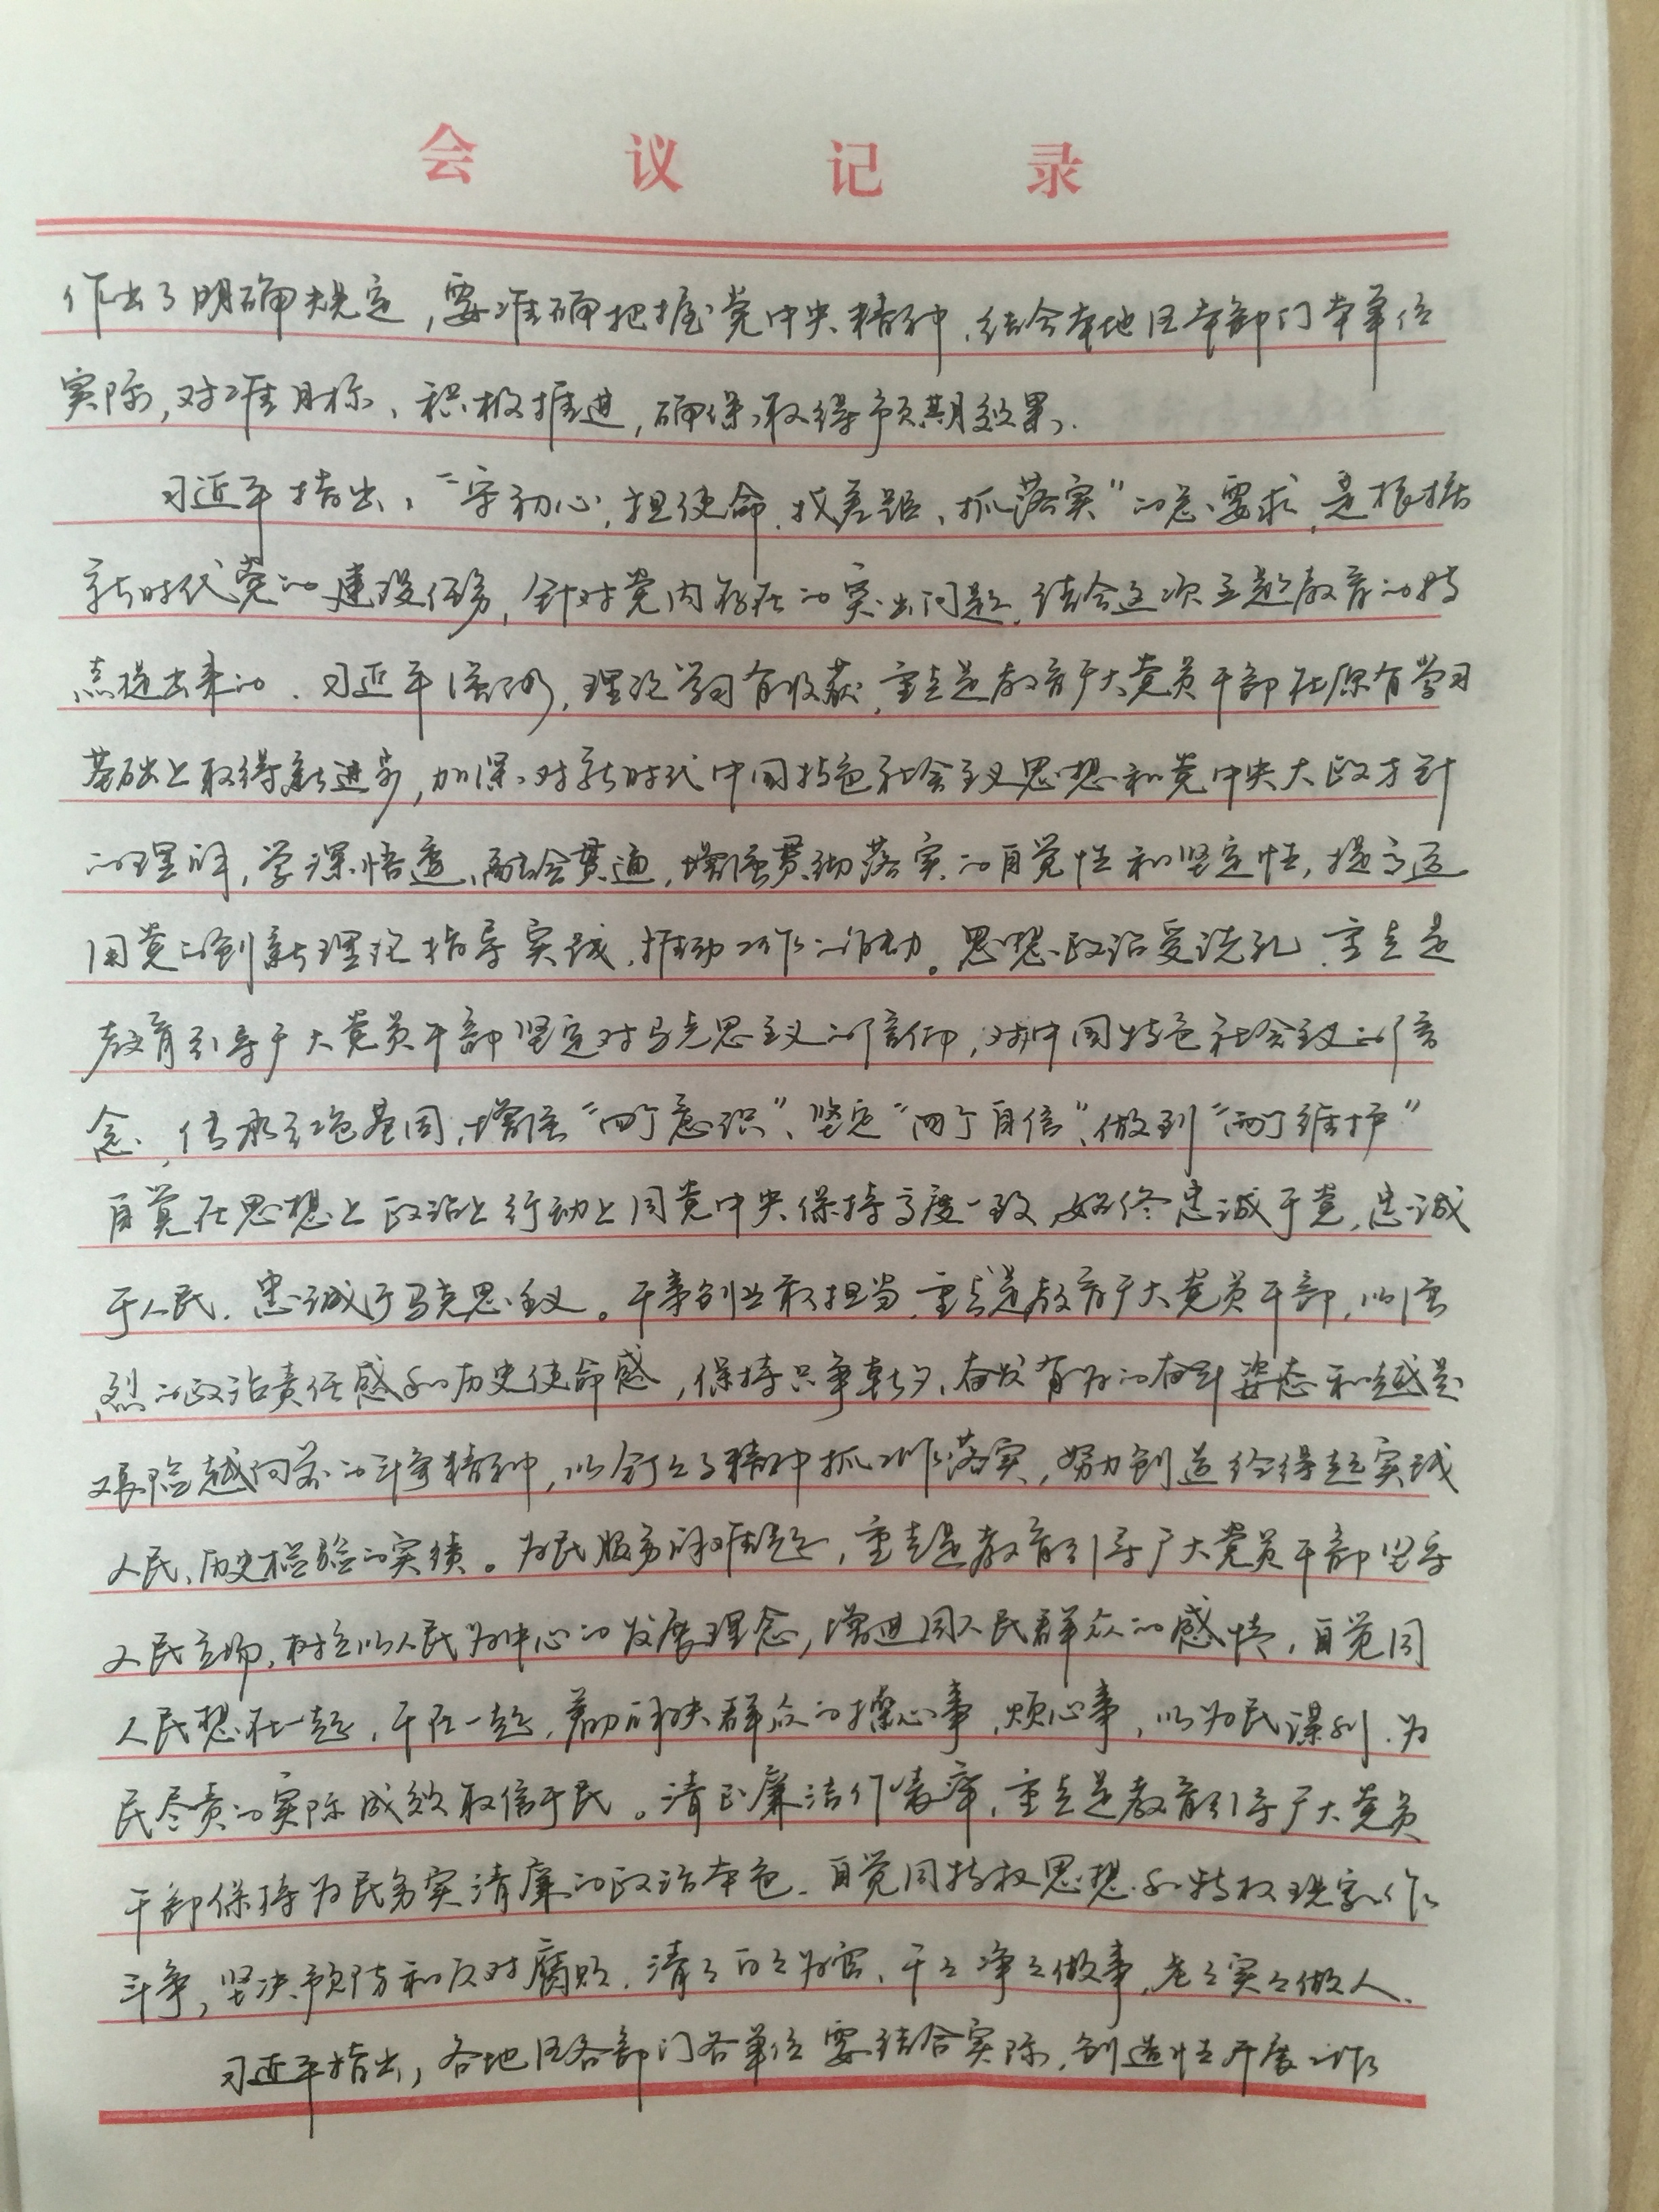 会议记录
作出了明确规定,要准确把握党中央精神,结合本地区本部门本单位
实际,对准目标、积极推进,确保取得预期效果.
习近平指出,“守初心,担使命,找差距、抓落实”的总要求,是根据
新时代党的建设任务,针对党内存在的突出问题,结合这次主题教育的特
点提出来的.习近平强调,理论学习有收获,重点是教育广大党员干部在原有学习
基础上取得新进步,加深对新时代中国特色社会主义思想和党中央大政方针
的理解,学深悟透、融会贯通,增强贯彻落实的自觉性和坚定性,提高运
用党的创新理论指导实践,推动工作的能力。思想政治受洗礼,重点是
教育引导广大党员干部坚定对马克思主义的信仰,对中国特色社会主义的信
念,传承红色基因,增强“四个意识”、坚定“四个自信”、做到“两个维护”
自觉在思想上政治上行动上同党中央保持高度一致,始终忠诚于党,忠诚
于人民.忠诚于马克思主义。干事创业敢担当,重点是教育广大党员干部,以强
烈的政治责任感和历史使命感,保持只争朝夕、奋发有为的奋斗姿态和越是
艰险越向前的斗争精神,以钉钉子精神抓工作落实,努力创造经得起实践
人民、历史检验的实绩。为民服务解难题,重点是教育引导广大党员干部坚守
人民立场,树立以人民为中心的发展理念,增进同人民群众的感情,自觉同
人民想在一起,干在一起,着力解决群众的操心事,烦心事,以为民谋利.为
民尽责的实际成效取信于民。清正廉洁作表率,重点是教育引导广大党员
干部保持为民务实清廉的政治本色.自觉同特权思想和特权现象作
斗争,坚决预防和反对腐败.清々白々为官、干々净々做事,老々实々做人.
习近平指出,各地区各部门各单位要结合实际,创造性开展工作